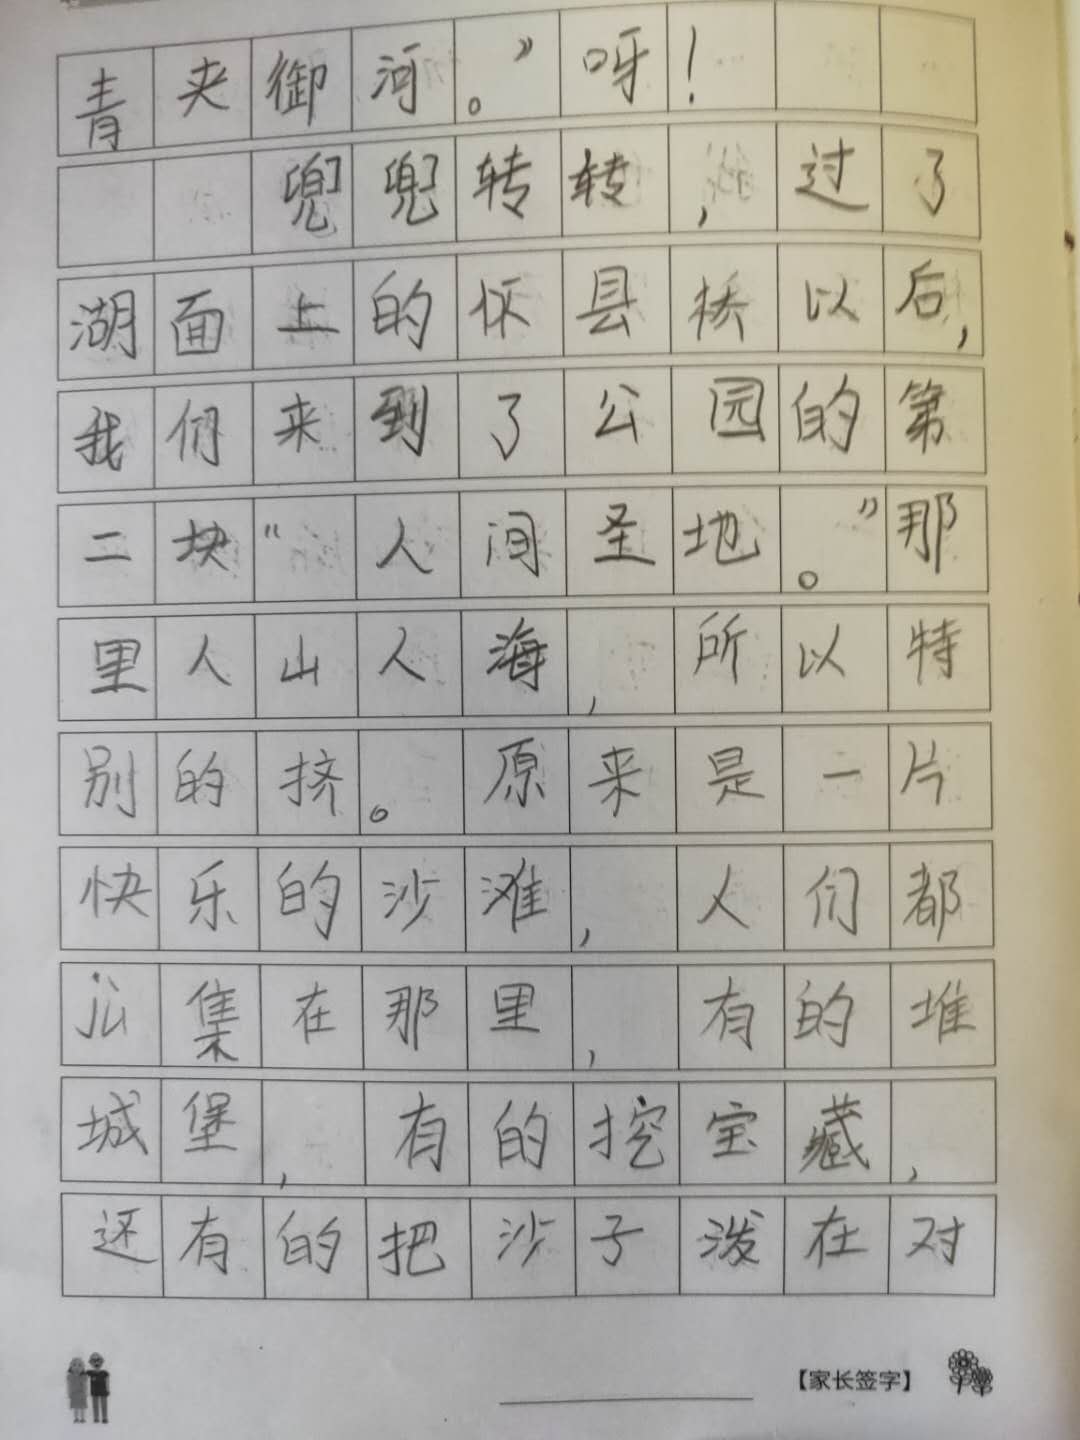 青夹御河。”呀！
兜兜转转，过了
湖面上的怀县桥以后，
我们来到了公园的第
二块“人间圣地。”那
里人山人海，所以特
别的挤。原来是一片
快乐的沙滩，人们都
jù集在那里，有的堆
城堡，有的挖宝藏，
还有的把沙子泼在对
【家长签字】